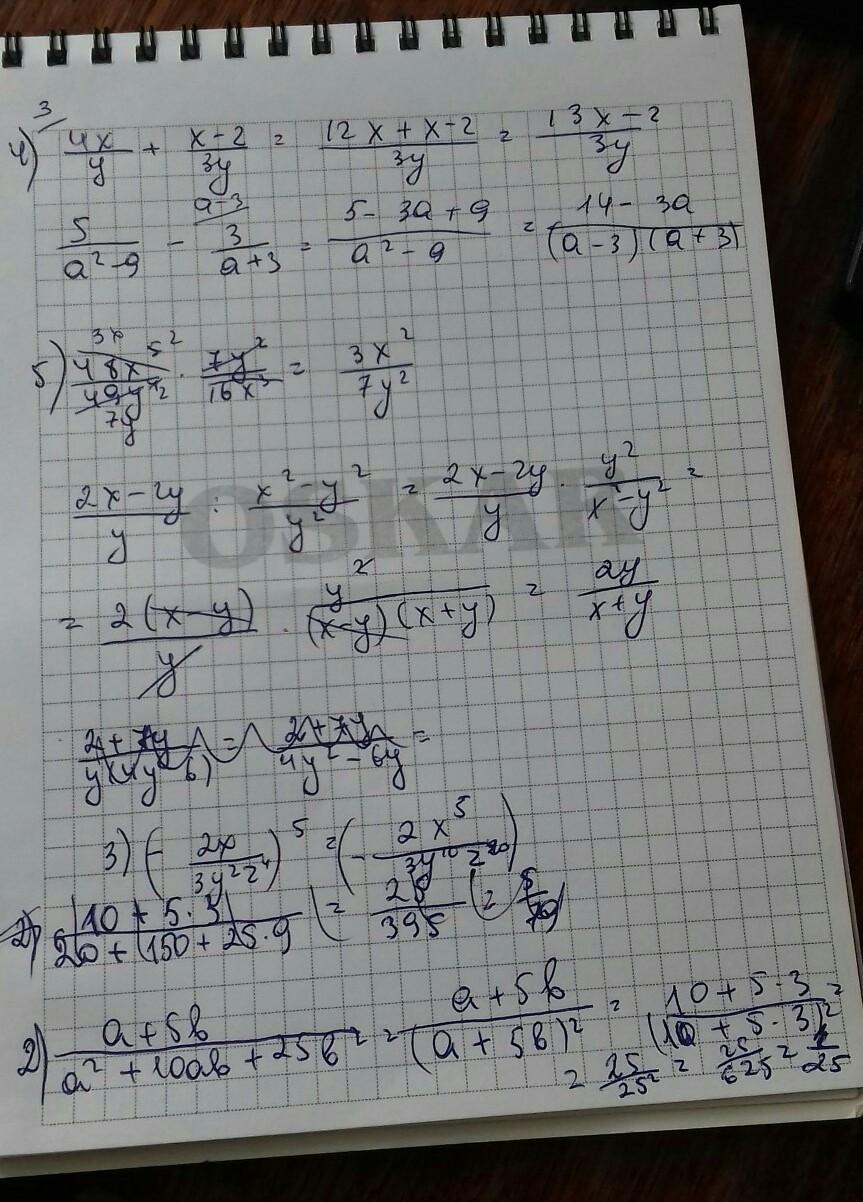 4) 4x/y + x-2/3y = 12x+x-2/3y = 13x-2/3y
5/a²-9 - 3/a+3 = 5-3a+9/a²-9 = 14-3a/(a-3)(a+3)
5) 48x⁵/49y⁴ · 7y²/16x³ = 3x²/7y²
2x-2y/y : x²-y²/y² = 2x-2y/y · y²/x²-y² =
= 2(x-y)/y · y²/(x-y)(x+y) = 2y/x+y
3) (- 2x/3y²z⁴)⁵ = (- 2x⁵/3y¹⁰z²⁰)
10+5·3/20+(150+25·9 = 25/395 = 5/79
2) a+5b/a²+10ab+25b² = a+5b/(a+5b)² = 10+5·3/(10+5·3)² =
= 25/25² = 25/625 = 1/25
OSKAR